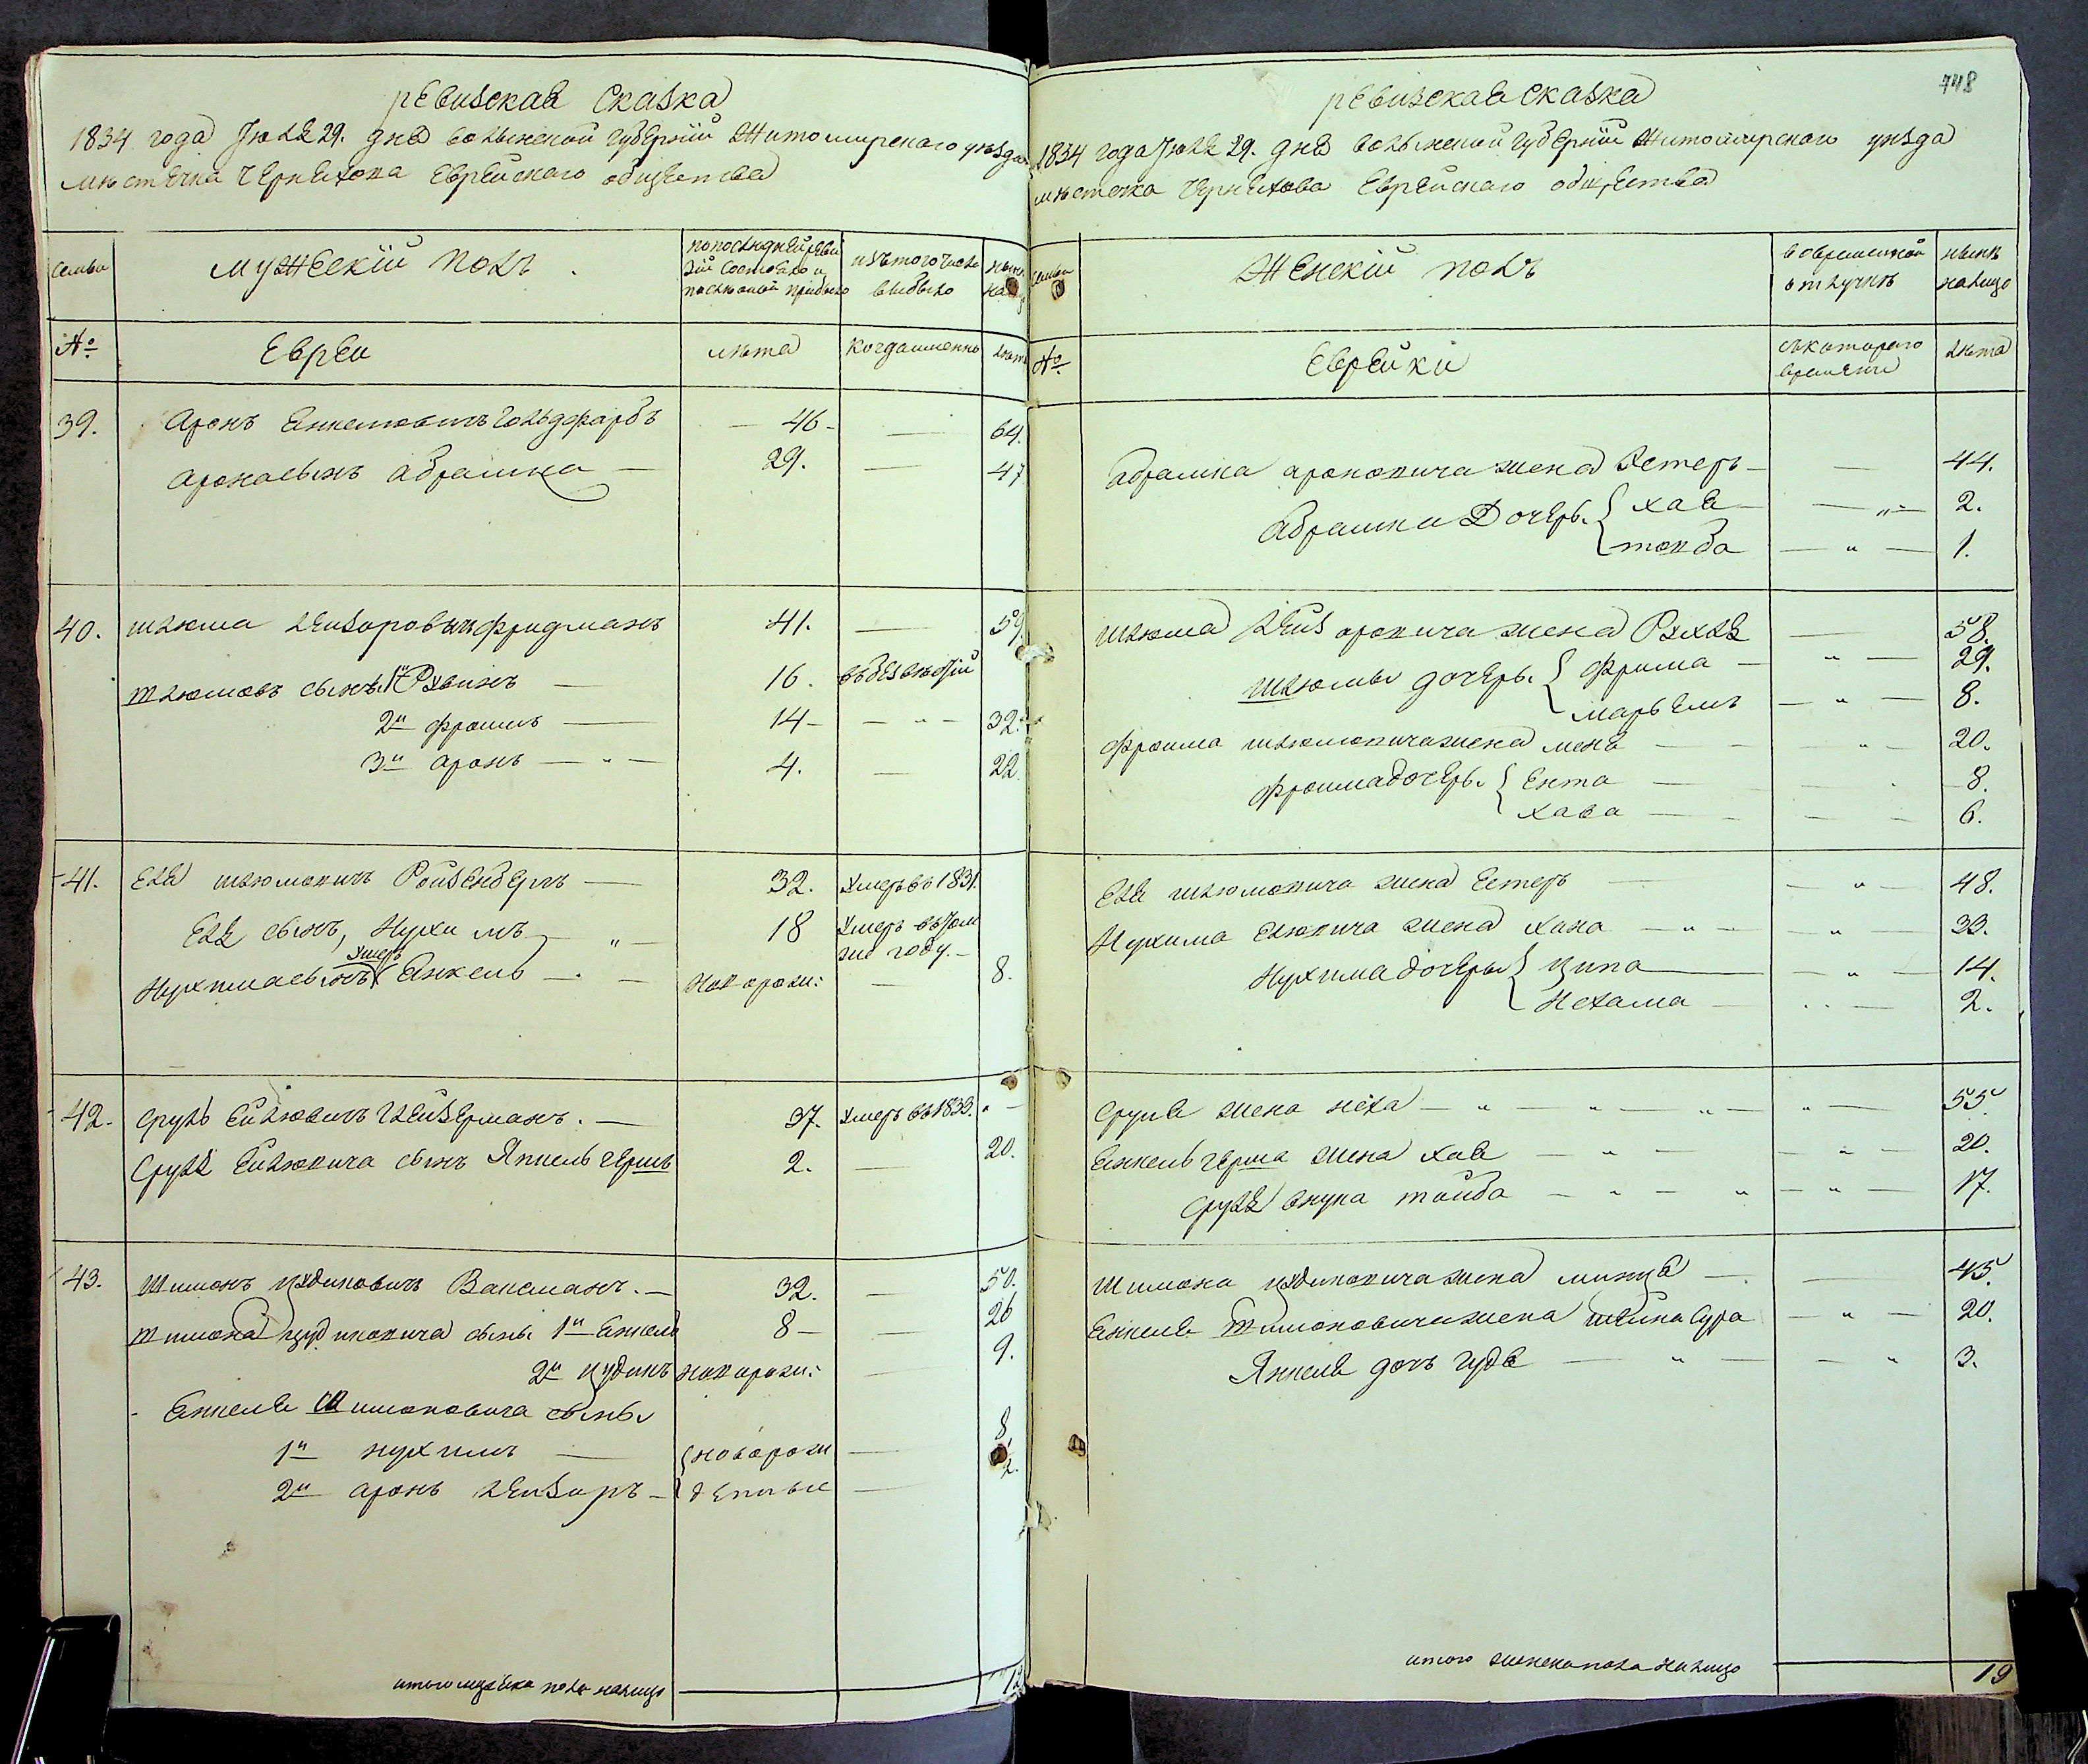 ревизская сказка
1834 года Июля 29. дня волынской губернiи Житомирского уѣзда
мѣстечка Черняхова Еврейского общества
семьи
мужескiй полъ.
по последней реви
зiи состояло и
после оной прибыло
изъ того числа
выбыло
№
Евреи
лѣта
когда именно
лѣта
39. Аронъ Янкелювичъ Гольдфарбъ — 46 — — 64.
Арона сынъ Абрамка — 29. — 47
40. Шлюма Лейзоровичъ Фридманъ 41. — 59.
Шлюмовъ сынъ 1й Рувинъ — 16. въ безвѣстiи
2й Фроимъ — 14 — — " — 32.
3й Аронъ — " — 4. — 22.
41. Еля Шлюмовичъ Ройзенбергъ — 32. умеръ въ 1831.
Еля сынъ, Нухимъ — " — 18 умеръ въ том
же году. —
умеръ
Нухима сынъ Янкель — " — новорожд: — 8.
42. Сруль Ейлювичъ Клейзерманъ. — 37. умеръ въ 1833. " —
Сруля Ейлювича сынъ Янкель Гершъ 2. — 20.
43. Шимонъ Юдковичъ Ваксманъ. — 32. — 50.
Шимона сынъ 1й Янкель 8 — — 26
2й новорожд: — 9.
Янкеля Шимоновича сыны
1й Нухимъ — новорож — 8.
2й Аронъ Лейзоръ — денные — 2.
итого мужеска пола налицо 12
748
ревизская сказка
1834 года Июля 29. дня волынской губернiи Житомирского уѣзда
мѣстечка Черняхова Еврейского общества
семьи
Женскiй полъ
во временной
отлучкѣ
нынѣ
налицо
№
Еврейки
съ которого
времени
лѣта
Абрамка Ароновича жена Эстеръ — — 44.
Абрамки дочери { Хая — — " — 2.
Тойба — " — 1.
Шлюма Лейзоровича жена Рухля — 58.
Шлюмы дочери { Фрима — " — 29.
Марьемъ — " — 8.
Фроима Шлюмовича жена Меня — — " — 20.
Фроима дочери { Ента — — 8.
Хава — — — 6.
Еля Шлюмовича жена Естеръ — — " — 48.
Нухима Елювича жена Хана — " — — " — 33.
Нухима дочери { Ципа — — " — 14.
Нехама — " — 2.
Сруля жена Неха — " — " — " — " — 55.
Янкель Герша жена Хая — " — — " — 20.
Сруля внука Тойба — " — " — " — 17.
Шимона жена — — 45.
Янкеля Шимоновича жена Шейна Сура — " — 20.
Янкеля дочь Гудя — " — — " 3.
итого женска пола налицо 19